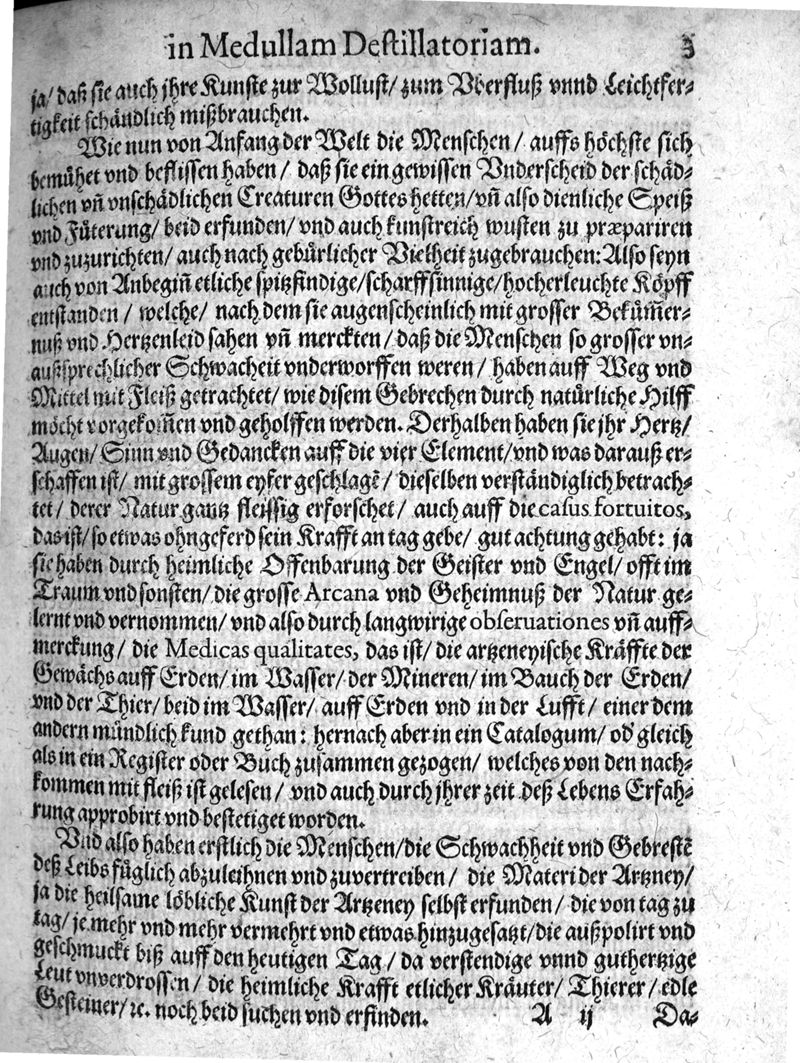 in Medullam Destillatoriam. 3
ja/ daß sie auch jhre Kunste zur Wollust/ zum Vberfluß vnnd Leichtfer-
tigkeit schändlich mißbrauchen.
Wie nun von Anfang der Welt die Menschen/ auffs höchste sich
bemühet vnd beflissen haben/ daß sie ein gewissen Vnderscheid der schäd-
lichen vñ vnschädlichen Creaturen Gottes hetten/ vñ also dienliche Speiß
vnd Füterung/ beid erfunden/ vnd auch kunstreich wusten zu præpariren
vnd zuzurichten/ auch nach gebürlicher Vielheit zugebrauchen: Also seyn
auch von Anbegiñ etliche spitzfindige/ scharffsinnige/ hocherleuchte Köpff
entstanden/ welche/ nach dem sie augenscheinlich mit grosser Bekům̃er-
nuß vnd Hertzenleid sahen vñ merckten/ daß die Menschen so grosser vn-
außsprechlicher Schwacheit vnderworffen weren/ haben auff Weg vnd
Mittel mit Fleiß getrachtet/ wie disem Gebrechen durch natürliche Hilff
möcht vorgekom̃en vnd geholffen werden. Derhalben haben sie jhr Hertz/
Augen/ Sinn vnd Gedancken auff die vier Element/ vnd was darauß er-
schaffen ist/ mit grossem eyfer geschlagẽ/ dieselben verständiglich betrach-
tet/ derer Natur gantz fleissig erforschet/ auch auff die casus fortuitos,
das ist/ so etwas ohngeferd sein Krafft an tag gebe/ gut achtung gehabt: ja
sie haben durch heimliche Offenbarung der Geister vnd Engel/ offt im
Traum vnd sonsten/ die grosse Arcana vnd Geheimnuß der Natur ge-
lernt vnd vernommen/ vnd also durch langwirige obseruationes vñ auff-
merckung/ die Medicas qualitates, das ist/ die artzeneyische Kräffte der
Gewächs auff Erden/ im Wasser/ der Mineren/ im Bauch der Erden/
vnd der Thier/ beid im Wasser/ auff Erden vnd in der Lufft/ einer dem
andern mündlich kund gethan: hernach aber in ein Catalogum/ od' gleich
als in ein Register oder Buch zusammen gezogen/ welches von den nach-
kommen mit fleiß ist gelesen/ vnd auch durch jhrer zeit deß Lebens Erfah-
rung approbirt vnd bestetiget worden.
Vnd also haben erstlich die Menschen/ die Schwachheit vnd Gebrestẽ
deß Leibs füglich abzuleihnen vnd zuvertreiben/ die Materi der Artzney/
ja die heilsame löbliche Kunst der Artzeney selbst erfunden/ die von tag zu
tag/ je mehr vnd mehr vermehrt vnd etwas hinzugesatzt/ die außpolirt vnd
geschmuckt biß auff den heutigen Tag/ da verstendige vnnd guthertzige
Leut vnverdrossen/ die heimliche Krafft etlicher Kräuter/ Thierer/ edle
Gesteiner/ ꝛc. noch beid suchen vnd erfinden. A ij Da-